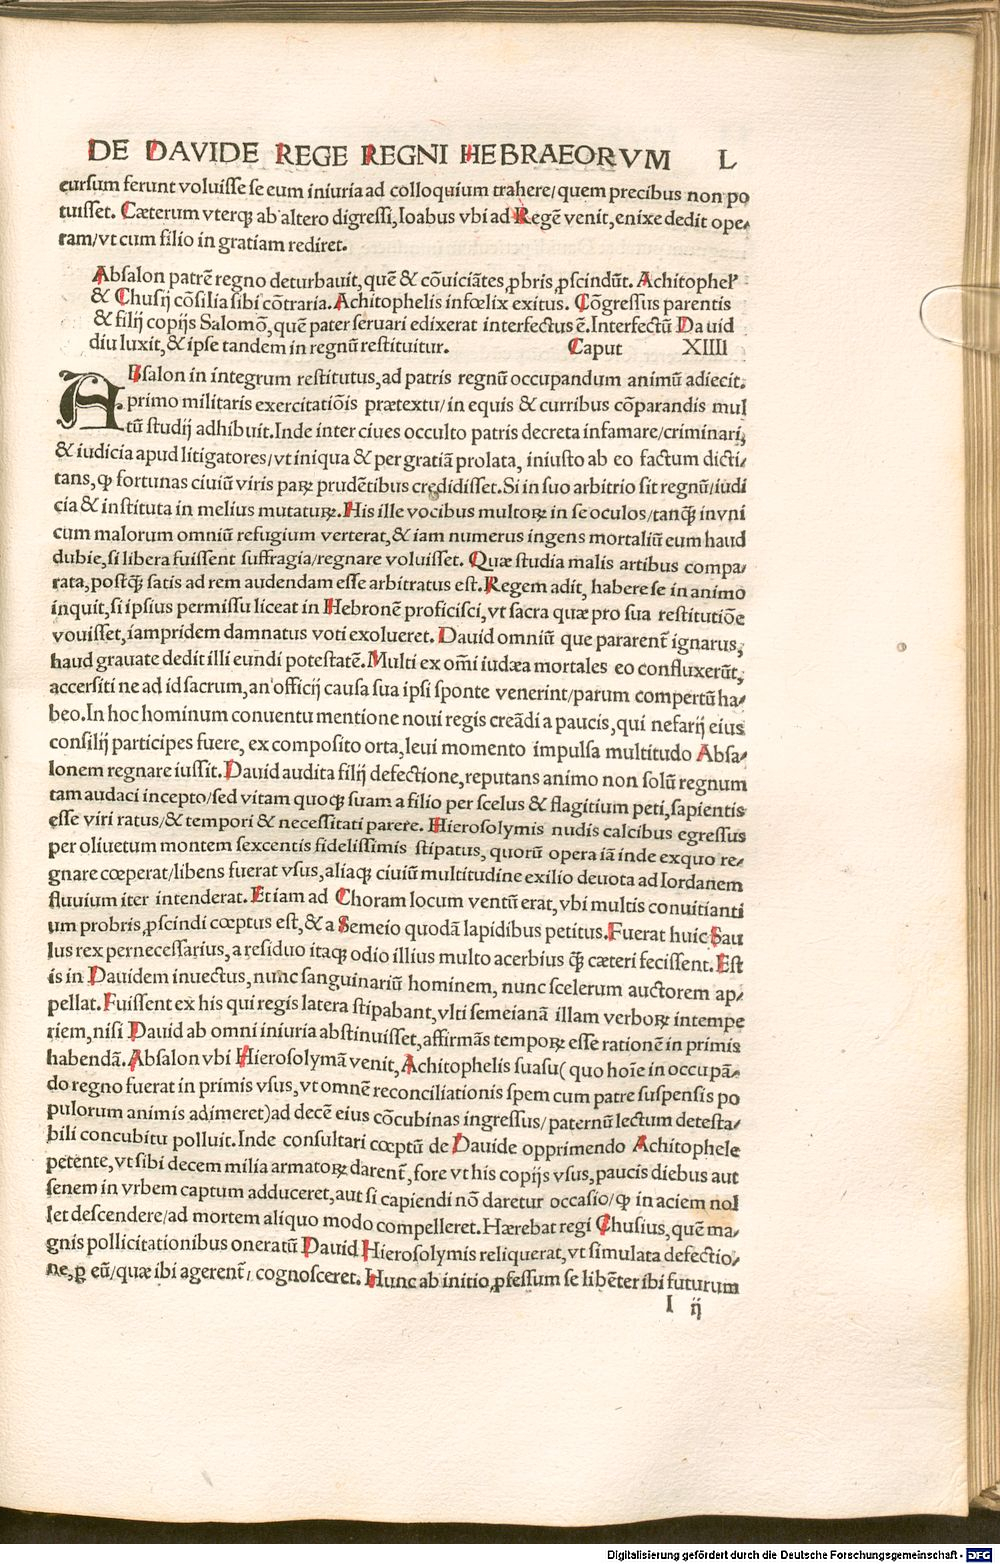 DE DAVIDE REGE REGNI HEBRAEORVM L
cursum ferunt voluisse se eum iniuria ad colloquium trahere/quem precibus non po
tuisset. Cæterum vterqꝫ ab altero digressi, Ioabus vbi ad Regẽ venit, enixe dedit ope⸗
ram/vt cum filio in gratiam rediret.
Absalon patrẽ regno deturbauit, quẽ & cõuiciãtes, ꝓbris, ꝓscindũt. Achitophel'
& Chusij cõsilia sibi cõtraria. Achitophelis infœlix exitus. Cõgressus parentis
& filij copijs Salomõ, quẽ pater seruari edixerat interfectus ẽ. Interfectũ Dauid
diu luxit, & ipse tandem in regnũ restituitur. Caput XIIII
ABsalon in integrum restitutus, ad patris regnũ occupandum animũ adiecit.
primo militaris exercitatiõis prætextu/in equis & curribus cõparandis mul
tũ studij adhibuit. Inde inter ciues occulto patris decreta infamare/criminari,
& iudicia apud litigatores/vt iniqua & per gratiã prolata, iniusto ab eo factum dicti⸗
tans, ꝙ fortunas ciuiũ viris paꝝ prudẽtibus credidisset. Si in suo arbitrio sit regnũ/iudi
cia & instituta in melius mutatuꝝ. His ille vocibus multoꝝ in se oculos/tanqꝫ in vni
cum malorum omniũ refugium verterat, & iam numerus ingens mortaliũ eum haud
dubie, si libera fuissent suffragia/regnare voluisset. Quæ studia malis artibus compa⸗
rata, postqꝫ satis ad rem audendam esse arbitratus est. Regem adit, habere se in animo
inquit, si ipsius permissu liceat in Hebronẽ proficisci, vt sacra quæ pro sua restitutiõe
vouisset, iampridem damnatus voti exolueret. Dauid omniũ que pararent̃ ignarus,
haud grauate dedit illi eundi potestatẽ. Multi ex om̃i iudæa mortales eo confluxerũt,
accersiti ne ad id sacrum, an officij causa sua ipsi sponte venerint/parum compertũ ha⸗
beo. In hoc hominum conuentu mentione noui regis creãdi a paucis, qui nefarij eius
consilij participes fuere, ex composito orta, leui momento impulsa multitudo Absa⸗
lonem regnare iussit. Dauid audita filij defectione, reputans animo non solũ regnum
tam audaci incepto/sed vitam quoqꝫ suam a filio per scelus & flagitium peti, sapientis
esse viri ratus/& tempori & necessitati parere. Hierosolymis nudis calcibus egressus
per oliuetum montem sexcentis fidelissimis stipatus, quorũ opera iã inde exquo re⸗
gnare cœperat/libens fuerat vsus, aliaqꝫ ciuiũ multitudine exilio deuota ad Iordanem
fluuium iter intenderat. Etiam ad Choram locum ventũ erat, vbi multis conuitianti
um probris, ꝓscindi cœptus est, & a Semeio quodã lapidibus petitus. Fuerat huic Sau
lus rex pernecessarius, a residuo itaqꝫ odio illius multo acerbius qꝫ̃ cæteri fecissent. Est
is in Dauidem inuectus, nunc sanguinariũ hominem, nunc scelerum auctorem ap⸗
pellat. Fuissent ex his qui regis latera stipabant, vlti semeianã illam verboꝝ intempe
riem, nisi Dauid ab omni iniuria abstinuisset, affirmãs tempoꝝ esse rationẽ in primis
habendã. Absalon vbi Hierosolymã venit, Achitophelis suasu( quo hoĩe in occupã⸗
do regno fuerat in primis vsus, vt omnẽ reconciliationis spem cum patre suspensis po
pulorum animis adimeret) ad decẽ eius cõcubinas ingressus/paternũ lectum detesta⸗
bili concubitu polluit. Inde consultari cœptũ de Dauide opprimendo Achitophele
petente, vt sibi decem milia armatoꝝ darent̃, fore vt his copijs vsus, paucis diebus aut
senem in vrbem captum adduceret, aut si capiendi nõ daretur occasio/ꝙ in aciem nol
let descendere/ad mortem aliquo modo compelleret. Hærebat regi Chusius, quẽ ma⸗
gnis pollicitationibus oneratũ Dauid Hierosolymis reliquerat, vt simulata defectio⸗
ne, ꝑ eũ/quæ ibi agerent̃, cognosceret. Hunc ab initio, ꝓfessum se libẽter ibi futurum
I ij
Digitalisierung gefördert durch die Deutsche Forschungsgemeinschaft - DFG